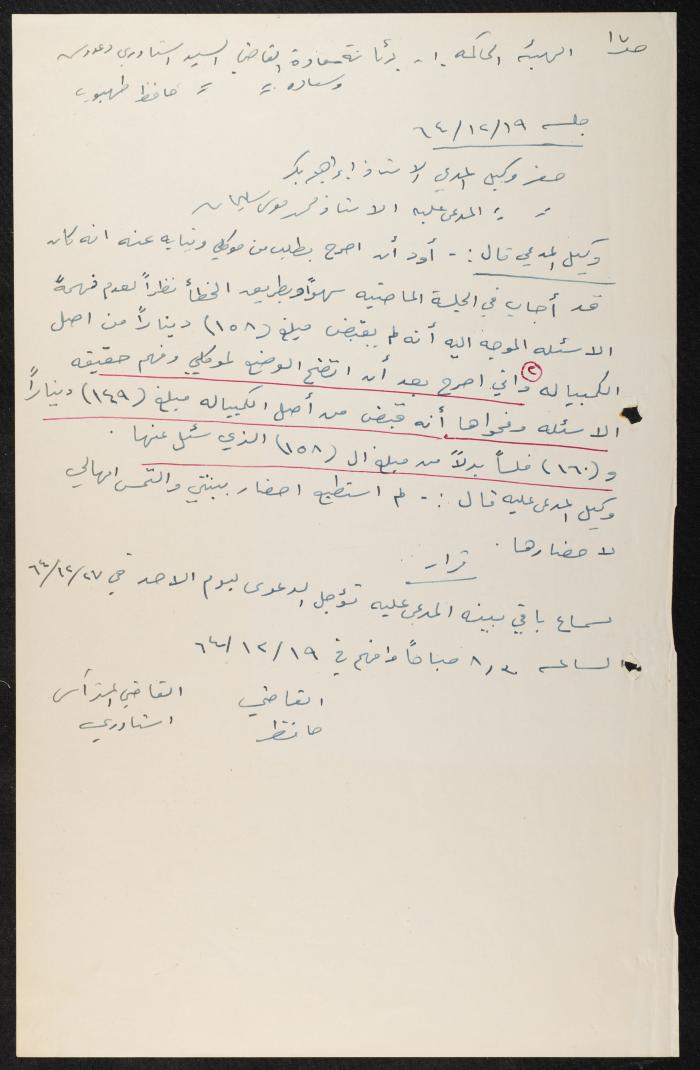 الهيئه الحاكمه :- برئاسة سعادة القاضي السيد استاوري دعدوس
وسعاده = = حافظ طهبوب
جلسه ٦٤/١٢/١٩
حضر وكيل المدعي الاستاذ ابراهيم بكر
= = المدعى عليه الاستاذ محمد موسى سليمان
وكيل المدعي قال :- أود أن اصرح بطلب من موكلي ونيابه عنه انه كان
قد أجاب في الجلسة الماضيه سهواً وبطريق الخطأ نظراً لعدم فهمه
الاسئله الموجه اليه أنه لم يقبض مبلغ (١٥٨) ديناراً من اصل
الكمبياله ٢ واني اصرح بعد أن اتضح الوضع لموكلي وفهم حقيقه
الاسئله وفحواها أنه قبض من أصل الكمبياله مبلغ (١٤٩) ديناراً
و (١٦٠) فلساً بدلاً من مبلغ ال (١٥٨) الذي سئل عنها .
وكيل المدعى عليه قال :- لم استطيع احضار بينتي والتمس امهالي
لاحضارها .
قرار
لسماع باقي بينه المدعى عليه تؤجل الدعوى ليوم الاحد في ٦٤/١٢/٢٧
الساعه ٨,٣٠ صباحاً وافهم في ٦٤/١٢/١٩
القاضي القاضي المترأس
حافظ استاوري